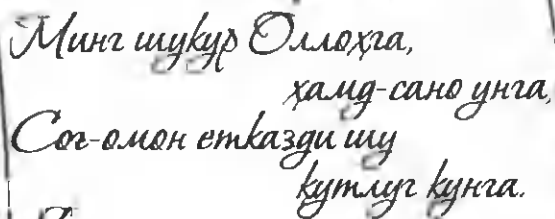 Минг шукур Оллоҳга,
ҳамд-сано унга,
Соғ-омон етказди шу
кутлуғ кунга.